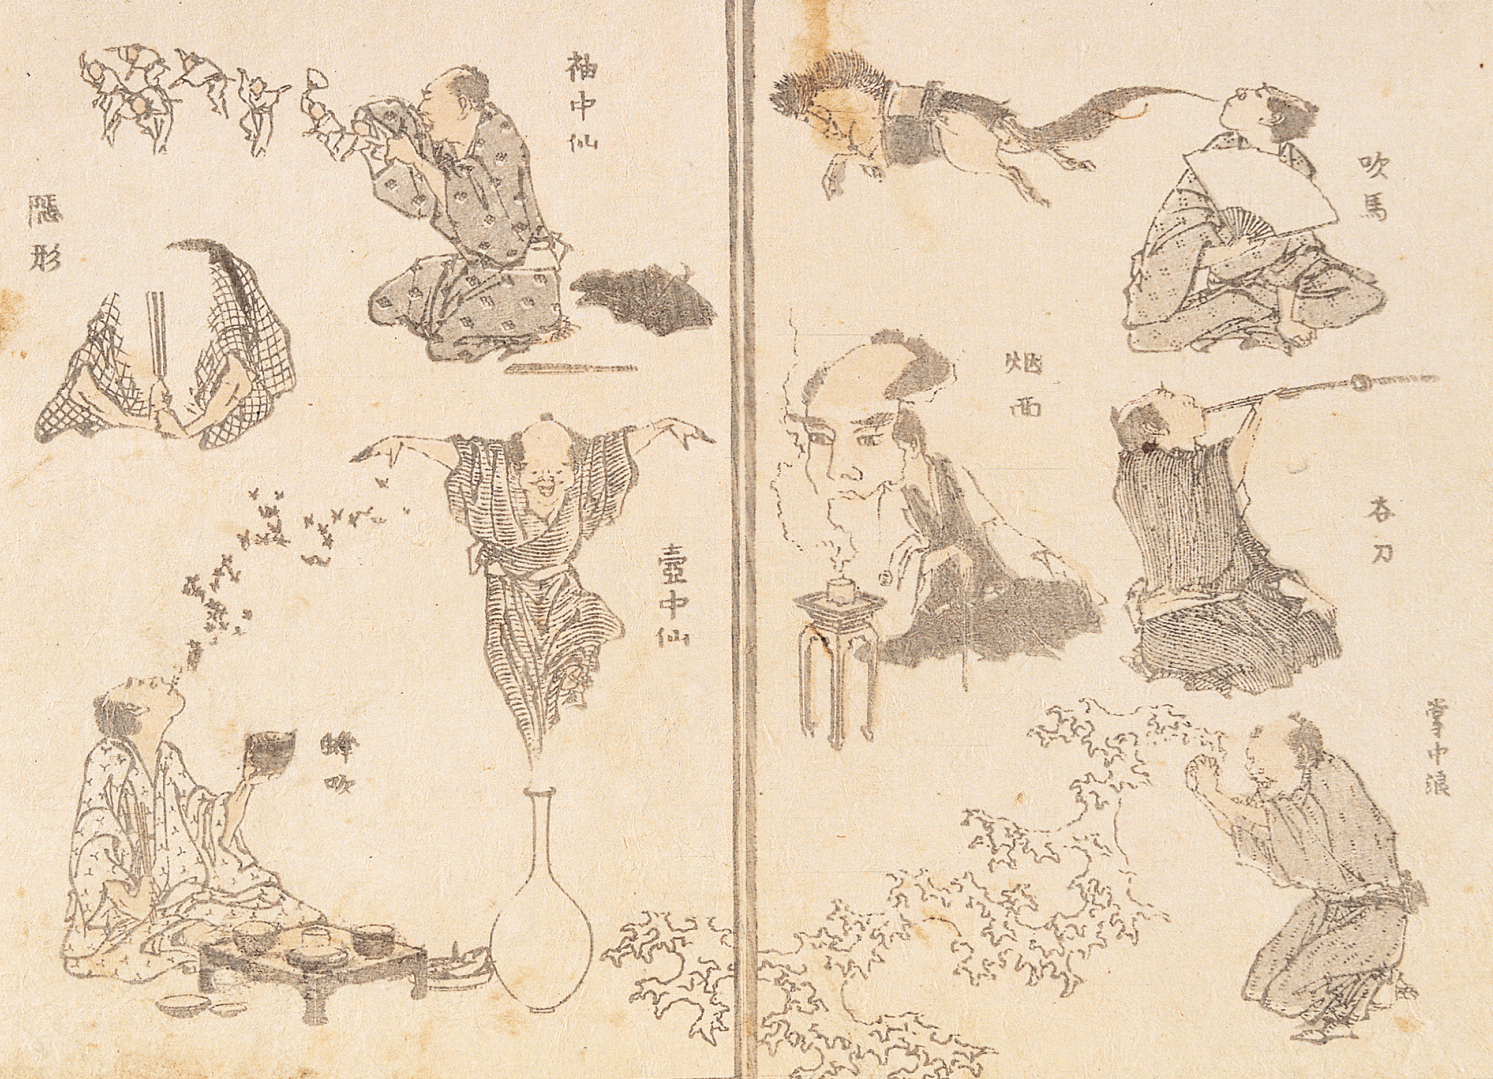 吹馬
呑刀
掌中浪
烟面
袖中仙
隱形
壺中仙
蜂吹